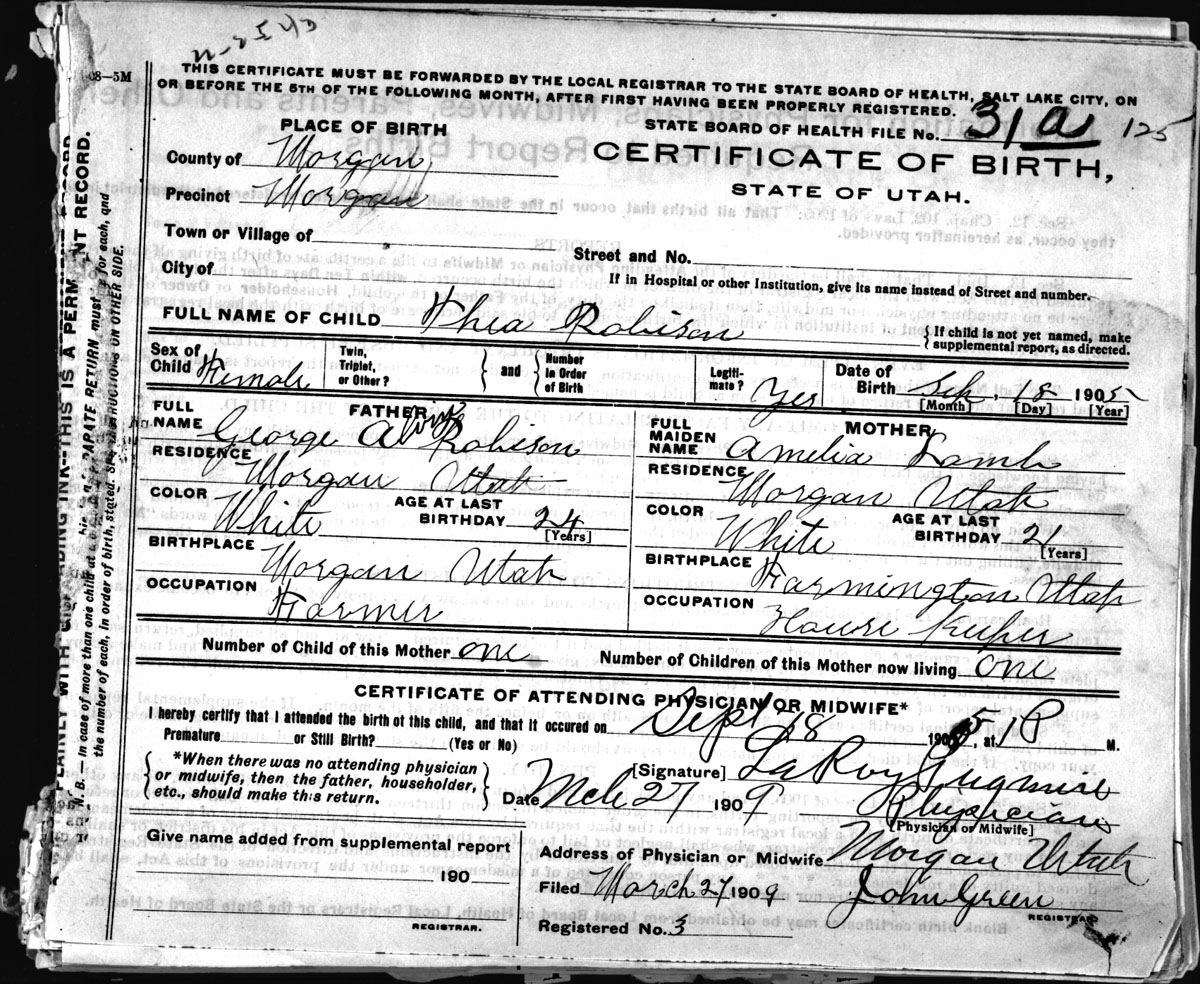 08—5M
THIS CERTIFICATE MUST BE FORWARDED BY THE LOCAL REGISTRAR TO THE STATE BOARD OF HEALTH, SALT LAKE CITY, ON
OR BEFORE THE 5TH OF THE FOLLOWING MONTH, AFTER FIRST HAVING BEEN PROPERLY REGISTERED.
PLACE OF BIRTH
STATE BOARD OF HEALTH FILE No. 31a 125
County of Morgan
CERTIFICATE OF BIRTH,
Precinct Morgan
STATE OF UTAH.
Town or Village of
Street and No.
City of
If in Hospital or other Institution, give its name instead of Street and number.
FULL NAME OF CHILD Thea Robison
{ If child is not yet named, make supplemental report, as directed.
Sex of Child Female
Twin, Triplet, or Other? } and { Number in Order of Birth
Legitimate? Yes
Date of Birth Sep. 18 1905
[Month] [Day] [Year]
FATHER
FULL NAME George Alvin Robison
RESIDENCE Morgan Utah
COLOR White
AGE AT LAST BIRTHDAY 24 [Years]
BIRTHPLACE Morgan Utah
OCCUPATION Farmer
MOTHER
FULL MAIDEN NAME Amelia Lamb
RESIDENCE Morgan Utah
COLOR White
AGE AT LAST BIRTHDAY 21 [Years]
BIRTHPLACE Farmington Utah
OCCUPATION House keeper
Number of Child of this Mother one
Number of Children of this Mother now living one
CERTIFICATE OF ATTENDING PHYSICIAN OR MIDWIFE*
I hereby certify that I attended the birth of this child, and that it occured on Sept 18 1905, at 1 P M.
Premature or Still Birth? (Yes or No)
{ *When there was no attending physician
or midwife, then the father, householder,
etc., should make this return. }
[Signature] LaRoy Sugmire
Date Mch 27 1909
Physician
[Physician or Midwife]
Give name added from supplemental report
190
REGISTRAR.
Address of Physician or Midwife Morgan Utah
Filed March 27 1909 John Green
REGISTRAR
Registered No. 3
THIS IS A PERMANENT RECORD.
N. B.—In case of more than one child at
SEPARATE RETURN must
for each, and
the number of each, in order of birth, stated.
INSTRUCTIONS ON OTHER SIDE.